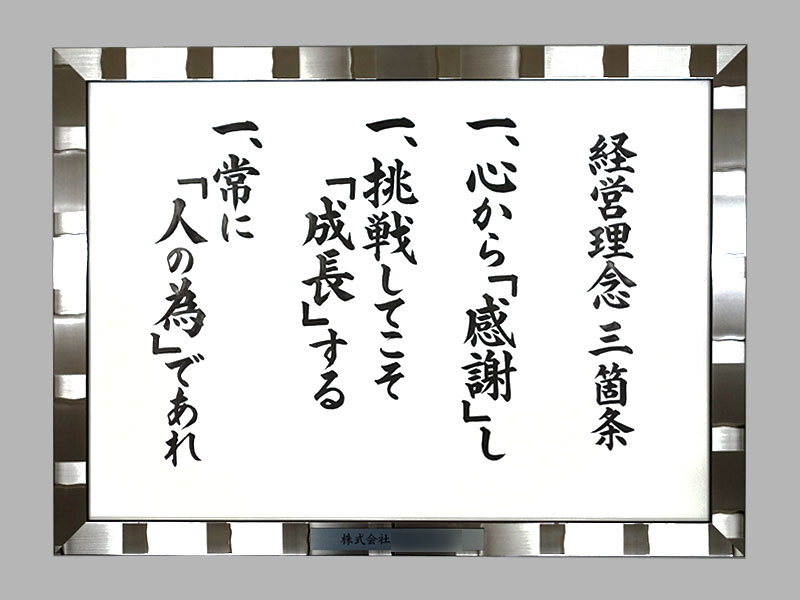 経営理念 三箇条
一、心から「感謝」し
一、挑戦してこそ
「成長」する
一、常に
「人の為」であれ
株式会社